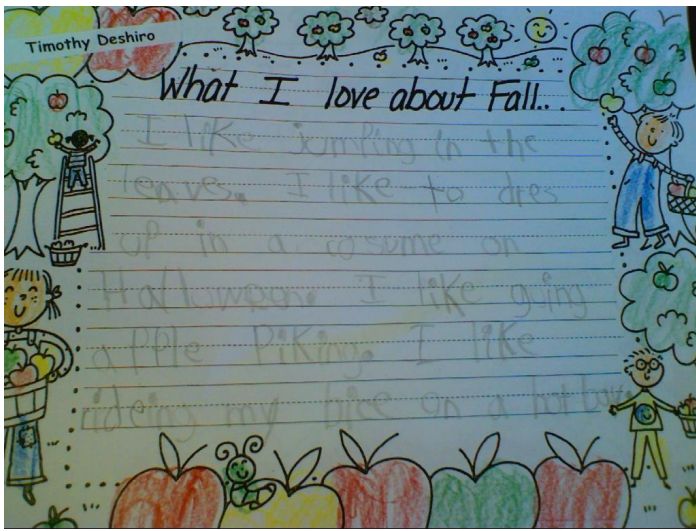 Timothy Deshiro
What I love about Fall...
I like jumping in the
leaves. I like to dres
up in a cosume on
Halloween. I like going
apple Piking. I like
rideing my bice on a hot bay.